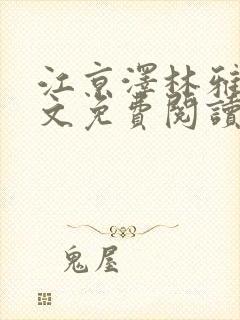 江京澤林雅
文免費閱讀
鬼屋